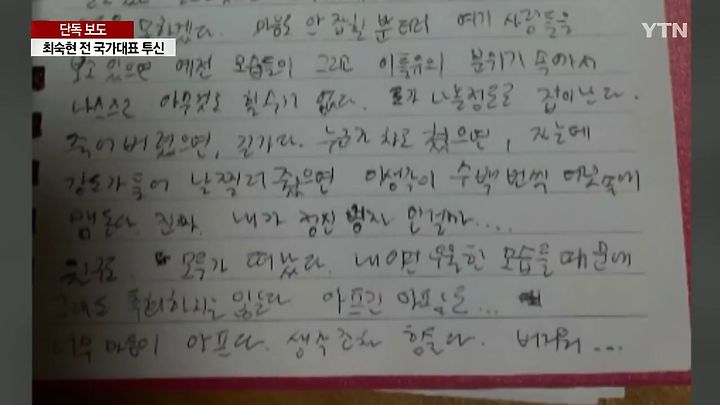 단독 보도
최숙현 전 국가대표 투신
YTN
못하겠다. 마음도 안 잡힐 뿐더러 여기 사람들을
보고 있으면 예전 모습들이 그리고 이특유의 분위기 속에서
나스스로 아무것도 할수가 없다. 나올정도로 겁이난다.
죽어버렸으면, 길가다. 누군가 차로 쳤으면, 자는데
강도가 들어 날찔러 줬으면 이생각이 수백번씩 머릿속에
맴돈다. 진짜. 내가 정신병자 인걸까....
친구도. 모두가 떠났다. 내 이런 우울한 모습들 때문에
그래도 후회하지는 않는다. 아프긴 아프
너무 마음이 아프다. 생각조차 힘들다. 버거워...